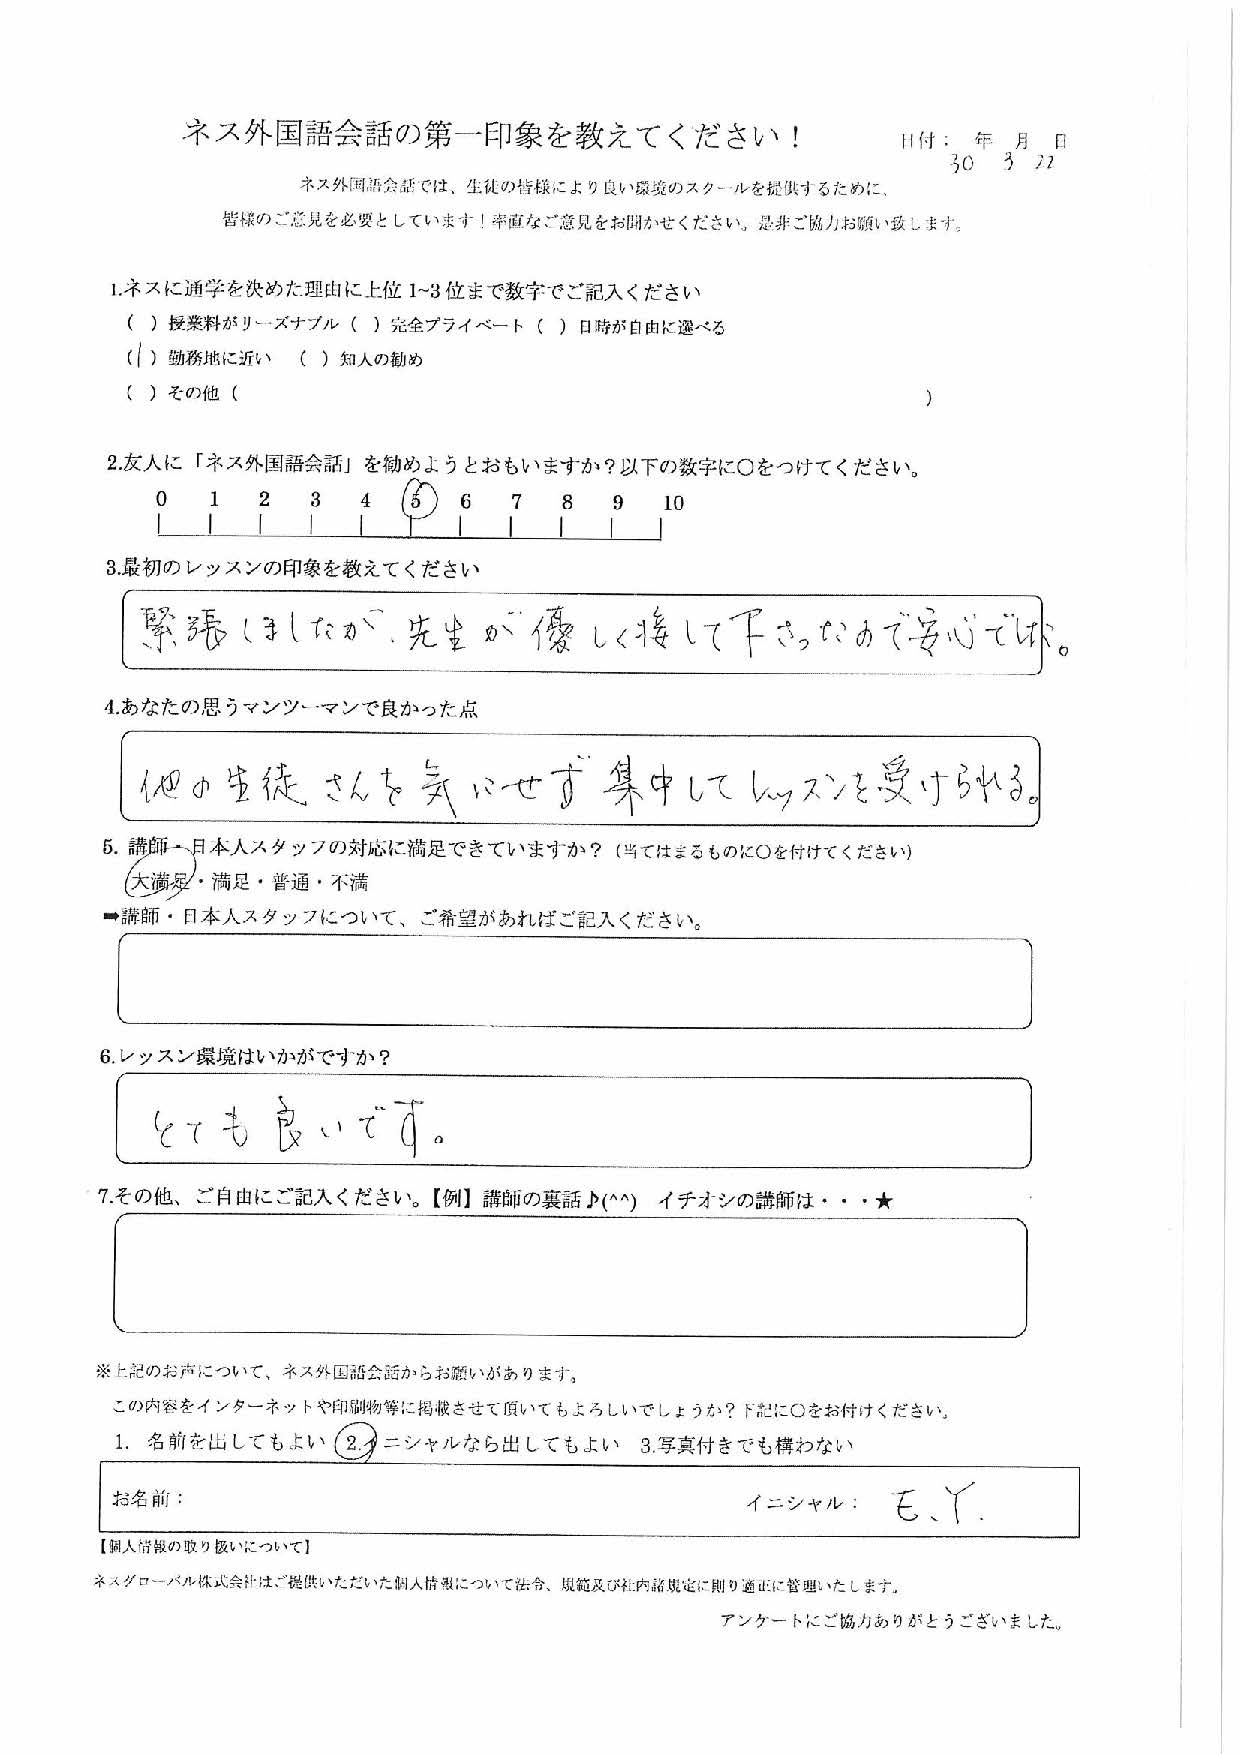 ネス外国語会話の第一印象を教えてください！
日付： 年 月 日
30 3 22
ネス外国語会話では、生徒の皆様により良い環境のスクールを提供するために、
皆様のご意見を必要としています！率直なご意見をお聞かせください。是非ご協力お願い致します。
1.ネスに通学を決めた理由に上位 1~3 位まで数字でご記入ください
（ ）授業料がリーズナブル（ ）完全プライベート（ ）日時が自由に選べる
（1）勤務地に近い （ ）知人の勧め
（ ）その他（ ）
2.友人に「ネス外国語会話」を勧めようとおもいますか？以下の数字に〇をつけてください。
0 1 2 3 4 5 6 7 8 9 10
3.最初のレッスンの印象を教えてください
緊張しましたが、先生が優しく接して下さったので安心でした。
4.あなたの思うマンツーマンで良かった点
他の生徒さんを気にせず集中してレッスンを受けられる。
5. 講師・日本人スタッフの対応に満足できていますか？（当てはまるものに〇を付けてください）
大満足・満足・普通・不満
➡講師・日本人スタッフについて、ご希望があればご記入ください。
6.レッスン環境はいかがですか？
とても良いです。
7.その他、ご自由にご記入ください。【例】講師の裏話♪(^^) イチオシの講師は・・・★
※上記のお声について、ネス外国語会話からお願いがあります。
この内容をインターネットや印刷物等に掲載させて頂いてもよろしいでしょうか？下記に〇をお付けください。
1. 名前を出してもよい 2.イニシャルなら出してもよい 3.写真付きでも構わない
お名前： イニシャル： E.Y.
【個人情報の取り扱いについて】
ネスグローバル株式会社はご提供いただいた個人情報について法令、規範及び社内諸規定に則り適正に管理いたします。
アンケートにご協力ありがとうございました。